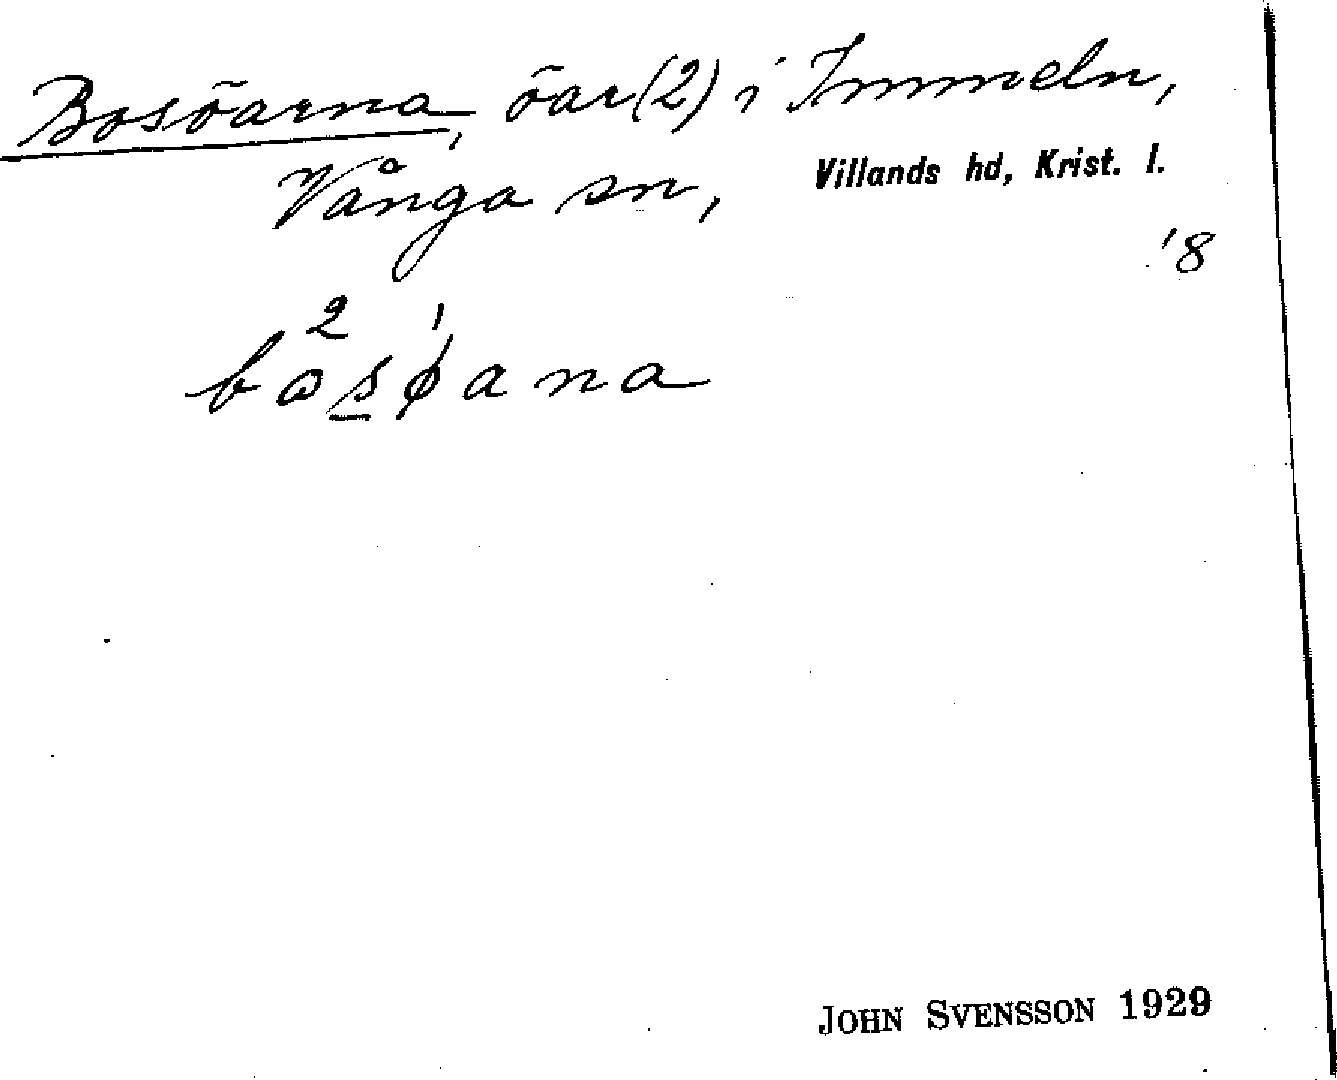 Bosöarna, öar (2) i Immeln,
Vånga sn, Villands hd, Krist. l.
'8
2 1
bosøana
JOHN SVENSSON 1929